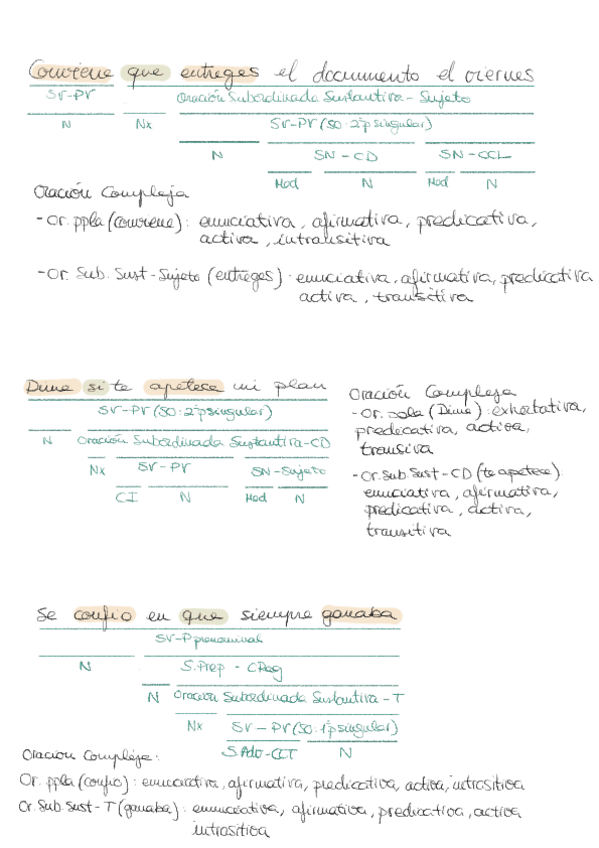 Conviene que entreges el documento el viernes
SV-PV Oración Subordinada Sustantiva - Sujeto
N Nx SV-PV (SO: 2ªp singular)
N SN-CD SN-CCL
Mod N Mod N
Oración Compleja
- Or. ppla (conviene): enunciativa, afirmativa, predicativa,
activa, intransitiva
- Or. Sub. Sust - Sujeto (entreges): enunciativa, afirmativa, predicativa
activa, transitiva
Dime si te apetece mi plan
SV-PV (SO: 2ªp singular)
N Oración Subordinada Sustantiva-CD
Nx SV-PV SN-Sujeto
CI N Mod N
Oración Compleja
- Or. ppla (Dime): exhortativa,
predicativa, activa,
transiva
- Or. Sub. Sust - CD (te apetece):
enunciativa, afirmativa,
predicativa, activa,
transitiva
Se confio en que siempre ganaba
SV-P pronominal
N S.Prep - CReg
N Oración Subordinada Sustantiva - T
Nx SV - PV (SO: 1ªp singular)
S.Adv-CCT N
Oración Compleja:
Or. ppla (confio): enunciativa, afirmativa, predicativa, activa, intrasitiva
Or. Sub. Sust - T (ganaba): enunciativa, afirmativa, predicativa, activa
intrasitiva